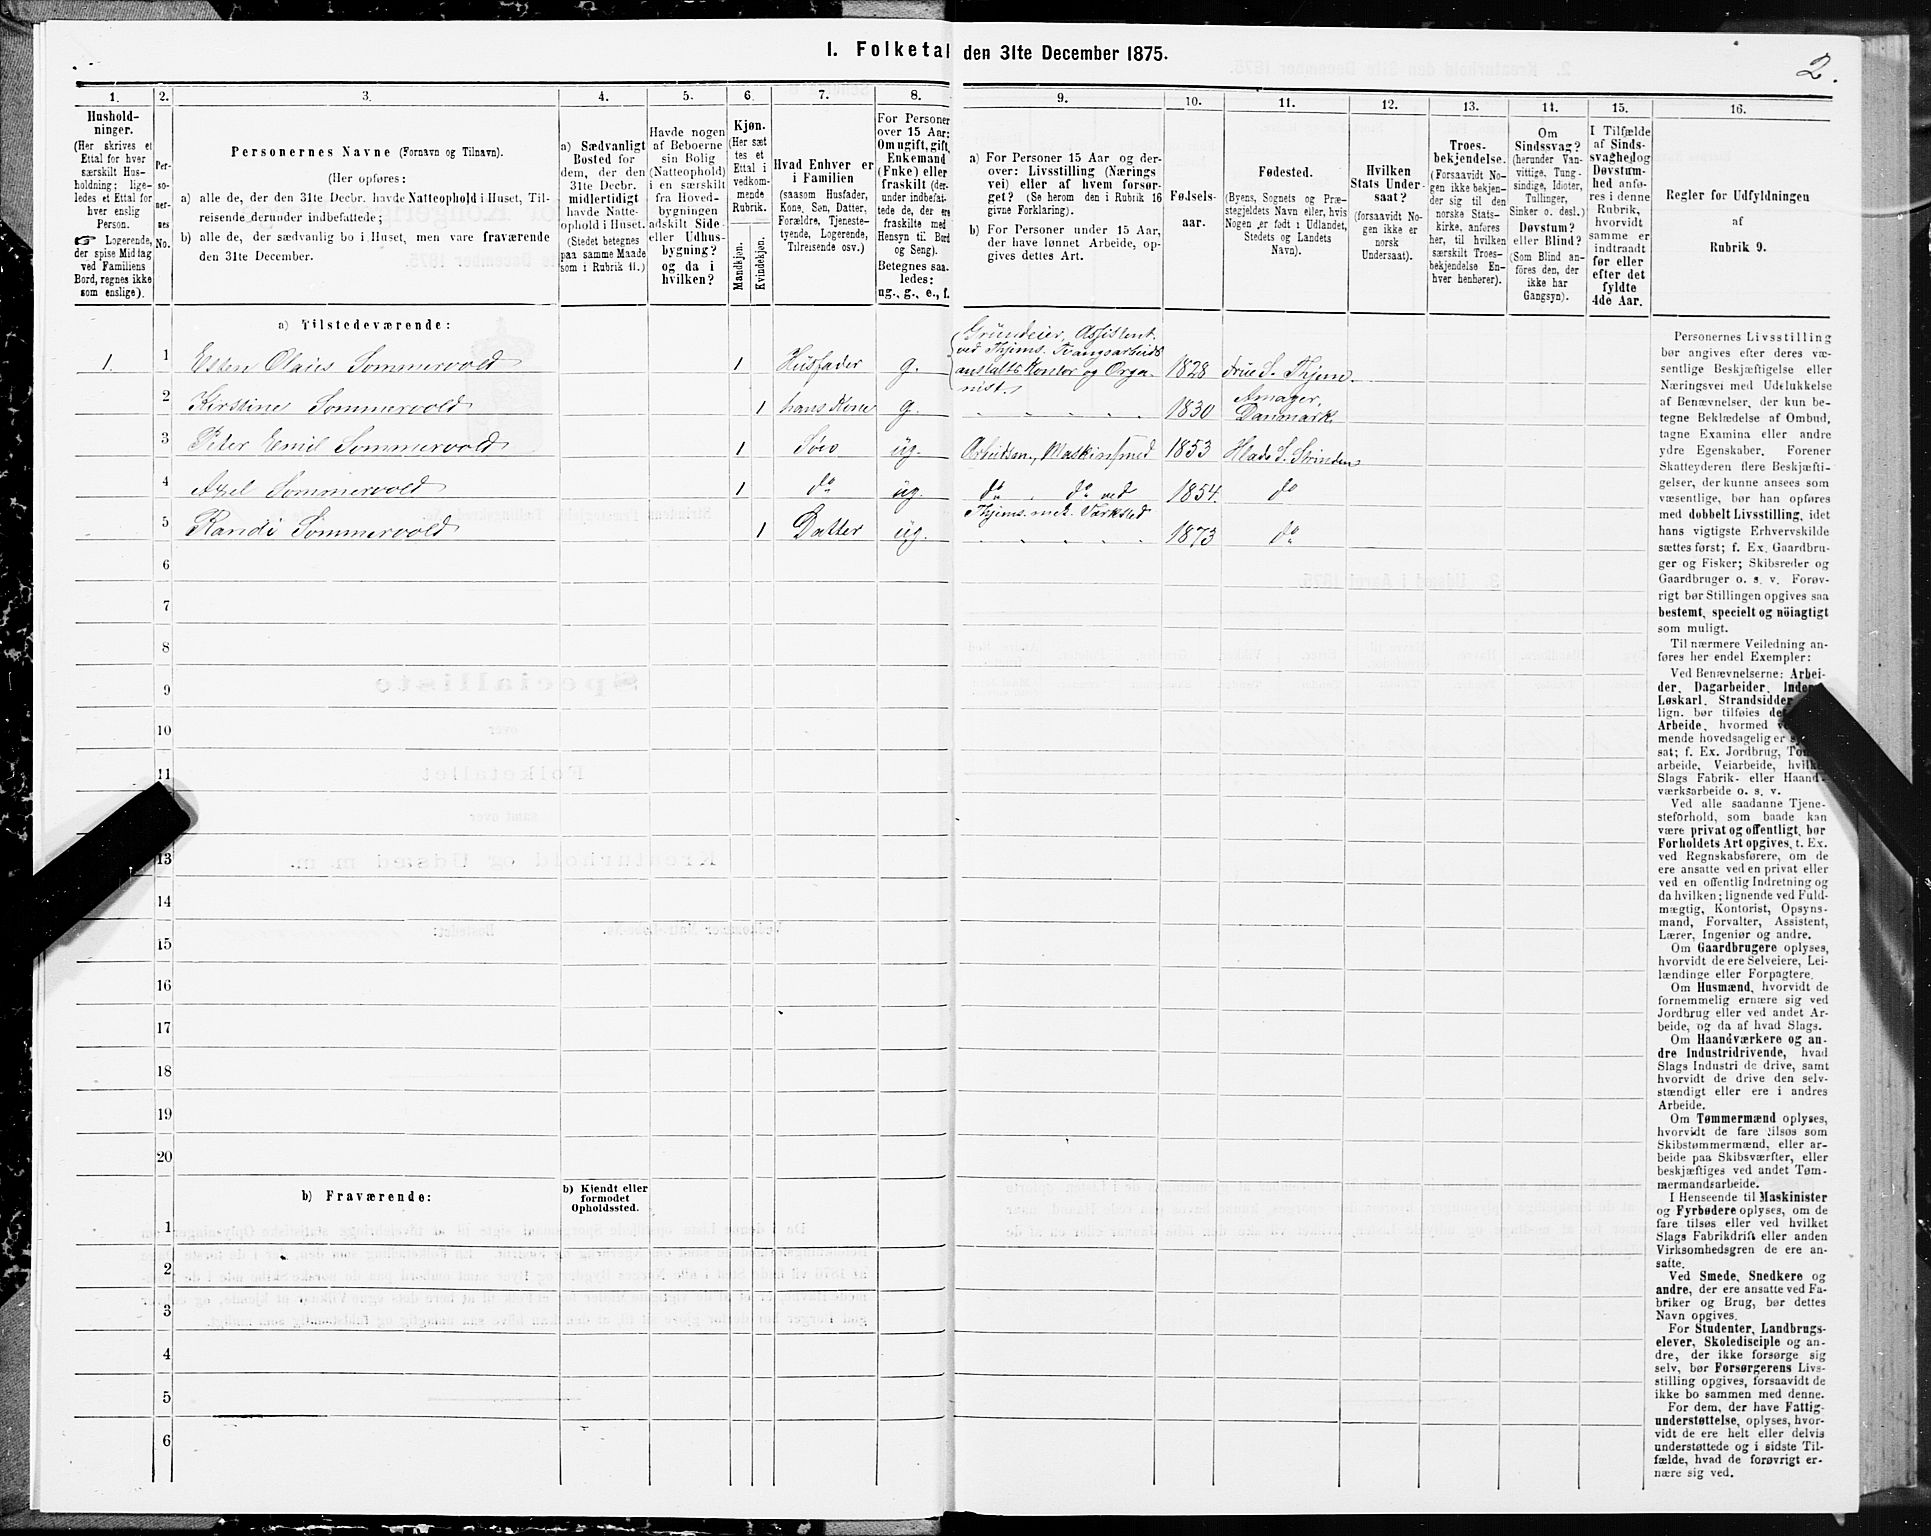 I. Folketal den 31te December 1875.
2.
1.
Hushold-
ninger.
(Her skrives et
Ettal for hver
særskilt Hus-
holdning; lige-
ledes et Ettal for
hver enslig
Person.
☞ Logerende,
der spise Middag
ved Familiens
Bord, regnes ikke
som enslige).
2.
Per-
so-
ner-
nes
No.
3.
Personernes Navne (Fornavn og Tilnavn).
(Her opføres:
a) alle de, der den 31te Decbr. havde Natteophold i Huset, Til-
reisende derunder indbefattede;
b) alle de, der sædvanlig bo i Huset, men vare fraværende
den 31te December.
4.
a) Sædvanligt
Bosted for
dem, der den
31te Decbr.
midlertidigt
havde Natte-
ophold i Huset.
(Stedet betegnes
paa samme Maade
som i Rubrik 11.)
5.
Havde nogen
af Beboerne
sin Bolig
(Natteophold)
i en særskilt
fra Hoved-
bygningen
adskilt Side-
eller Udhus-
bygning?
og da i
hvilken?
6.
Kjøn.
(Her sæt
tes et
Ettal i
vedkom-
mende
Rubrik.
Mandkjøn.
Kvindekjøn.
7.
Hvad Enhver er
i Familien
(saasom Husfader,
Kone, Søn, Datter,
Forældre, Tjeneste-
tyende, Logerende,
Tilreisende osv.)
8.
For Personer
over 15 Aar:
Om ugift, gift,
Enkemand
(Enke) eller
fraskilt (der-
under indbefat-
tede de, der ere
fraskilte med
Hensyn til Bord
og Seng).
Betegnes saa-
ledes:
ug., g., e., f.
9.
a) For Personer 15 Aar og der-
over: Livsstilling (Nærings
vei) eller af hvem forsør-
get? (Se herom den i Rubrik 16
givne Forklaring).
b) For Personer under 15 Aar,
der have lønnet Arbeide, op-
gives dettes Art.
10.
Fødsels-
aar.
11.
Fødested.
(Byens, Sognets og Præ-
stegjeldets Navn eller, hvis
Nogen er født i Udlandet,
Stedets og Landets
Navn).
12.
Hvilken
Stats Under-
saat?
(forsaavidt No-
gen ikke er
norsk
Undersaat).
13.
Troes-
bekjendelse.
(Forsaavidt No-
gen ikke bekjen-
der sig til den
norske Stats-
kirke, anføres
her, til hvilken
særskilt Troes-
bekjendelse En-
hver henhører).
14.
Om
Sindssvag?
(herunder Van-
vittige, Tung-
sindige, Idioter,
Tullinger,
Sinker o. desl.)
Døvstum?
eller Blind?
(Som Blind an-
føres den, der
ikke har
Gangsyn).
15.
I Tilfælde
af Sinds-
svaghed og
Døvstum-
hed anfø-
res i denne
Rubrik,
hvorvidt
samme er
indtraadt
før eller
efter det
fyldte
4de Aar.
16.
Regler for Udfyldningen
af
Rubrik 9.
a) Tilstedeværende:
Grundeier, Assistent
ved Thjems. Tvangsarbeids
1. 1 Esten Olaus Sommervold 1 Husfader g. anstalts Kontor og Orga- 1828 Frue S. Thjem.
nist.
2 Kirstine Sommervold 1 hans Kone g. 1830 Amager,
Danmark
3 Peter Emil Sommervold 1 Søn ug. Arbeidsm., Maskinsmed 1853 Hlade S. Strinden
4 Axel Sommervold 1 do ug. do do ved 1854. do
Thjems. mek. Værksted
5 Randi Sommervold 1 Datter ug. 1873 do
6
7
8
9
10
11
13
14
15
16
17
18
19
20
b) Fraværende:
b) Kjendt eller
formodet
Opholdssted.
1
2
3
4
5
6
Personernes Livsstilling
bør angives efter deres væ-
sentlige Beskjæftigelse eller
Næringsvei med Udelukkelse
af Benævnelser, der kun be-
tegne Beklædelse af Ombud,
tagne Examina eller andre
ydre Egenskaber. Forener
Skatteyderen flere Beskjæfti-
gelser, der kunne ansees som
væsentlige, bør han opføres
med dobbelt Livsstilling, idet
hans vigtigste Erhvervskilde
sættes først; f. Ex. Gaardbru-
ger og Fisker; Skibsreder og
Gaardbruger o. s. v. Forøv-
rigt bør Stillingen opgives saa
bestemt, specielt og nöiagtigt
som muligt.
Til nærmere Veiledning an-
føres her endel Exempler:
Ved Benævnelserne: Arbei-
der, Dagarbeider, Inder
Løskarl, Strandsidder
lign. bør tilføies de
Arbeide, hvormed
mende hovedsagelig er
sat; f. Ex. Jordbrug,
arbeide, Veiarbeide, hvilke
Slags Fabrik- eller Haand-
værksarbeide o. s. v.
Ved alle saadanne Tjene-
steforhold, som baade kan
være privat og offentligt, bør
Forholdets Art opgives, t. Ex.
ved Regnskabsførere, om de
ere ansatte ved en privat eller
ved en offentlig Indretning og
da hvilken; lignende ved Fuld-
mægtig, Kontorist, Opsyns-
mand, Forvalter, Assistent,
Lærer, Ingeniør og andre.
Om Gaardbrugere oplyses,
hvorvidt de ere Selveiere, Lei-
lændinge eller Forpagtere.
Om Husmænd, hvorvidt de
fornemmelig ernære sig ved
Jordbrug eller ved andet Ar-
beide, og da af hvad Slags.
Om Haandværkere og an-
dre Industridrivende, hvad
Slags Industri de drive, samt
hvorvidt de drive den selv-
stændigt eller ere i andres
Arbeide.
Om Tømmermænd oplyses,
hvorvidt de fare tilsøs som
Skibstømmermænd, eller ar-
beide paa Skibsværfter, eller
beskjæftiges ved andet Tøm-
mermandsarbeide.
I Henseende til Maskinister
og Fyrbødere oplyses, om de
fare tilsøs eller ved hvilket
Slags Fabrikdrift eller anden
Virksomhedsgren de ere an-
satte.
Ved Smede, Snedkere og
andre, der ere ansatte ved Fa-
briker og Brug, bør dettes
Navn opgives.
For Studenter, Landbrugs-
elever, Skoledisciple og an-
dre, der ikke forsørge sig
selv, bør Forsørgerens Livs-
stilling opgives, forsaavidt de
ikke bo sammen med denne.
For dem, der have Fattig-
understøttelse, oplyses, hvor-
vidt de ere helt eller delvis
understøttede og i sidste Til-
fælde, hvad de forøvrigt er-
nære sig ved.